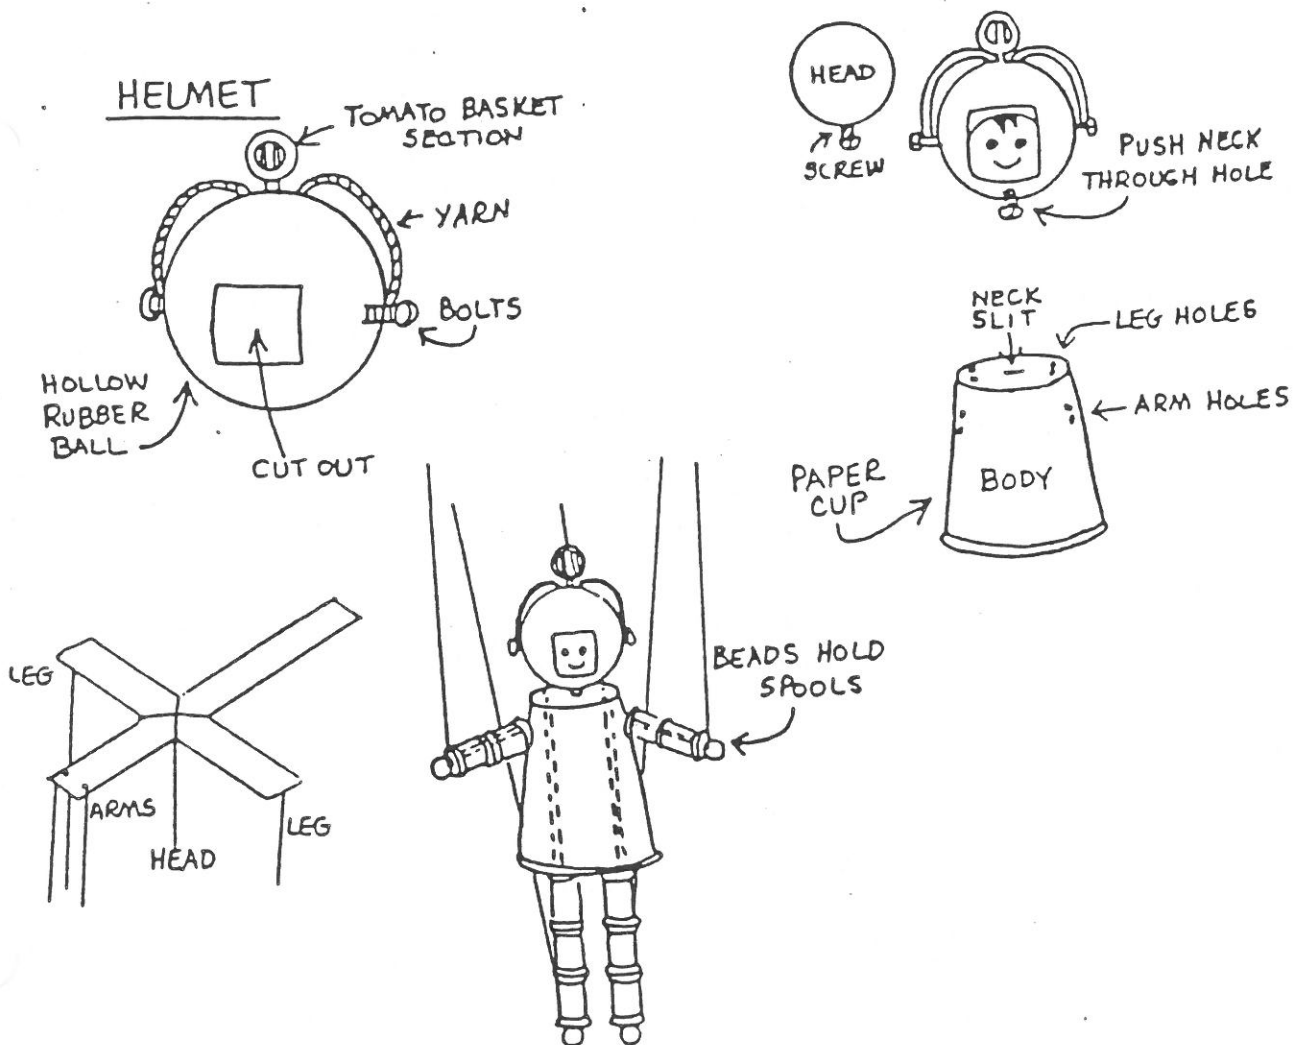 HELMET
TOMATO BASKET
SECTION
YARN
BOLTS
HOLLOW
RUBBER
BALL
CUT OUT
HEAD
SCREW
PUSH NECK
THROUGH HOLE
NECK
SLIT
LEG HOLES
ARM HOLES
PAPER
CUP
BODY
LEG
ARMS
HEAD
LEG
BEADS HOLD
SPOOLS